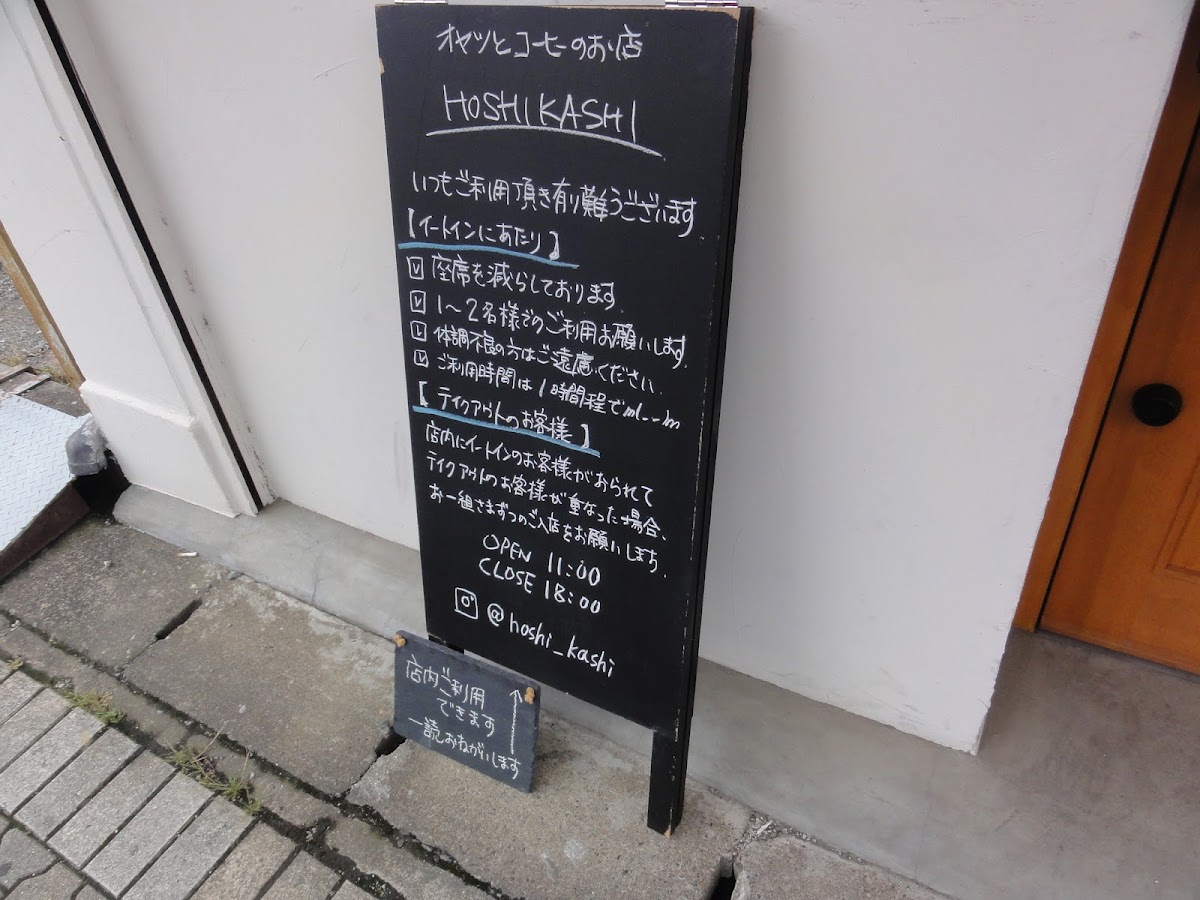 オヤツとコーヒーのお店
HOSHIKASHI
いつもご利用頂き有り難うございます.
【イートインにあたり】
座席を減らしております.
1〜2名様でのご利用お願いします.
体調不良の方はご遠慮ください.
ご利用時間は1時間程で
【テイクアウトのお客様】
店内にイートインのお客様がおられて
テイクアウトのお客様が重なった場合、
お一組さまずつのご入店をお願いします.
OPEN 11:00
CLOSE 18:00
@hoshi_kashi
店内ご利用
できます
一読おねがいします